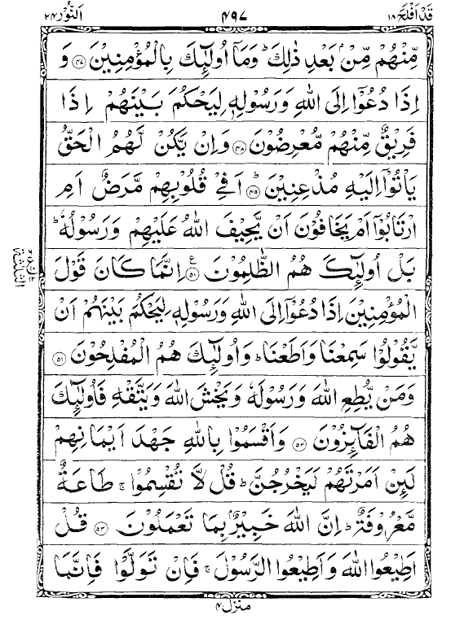 قَدْ اَفْلَحَ ١٨ ٤٩٧ اَلنُّوْر ٢٤
مِّنْهُمْ مِّنْۢ بَعْدِ ذٰلِكَ ؕ وَمَاۤ اُولٰٓئِكَ بِالْمُؤْمِنِيْنَ ﴿٤٧﴾ وَ
اِذَا دُعُوْۤا اِلَى اللّٰهِ وَرَسُوْلِهٖ لِيَحْكُمَ بَيْنَهُمْ اِذَا
فَرِيْقٌ مِّنْهُمْ مُّعْرِضُوْنَ ﴿٤٨﴾ وَاِنْ يَّكُنْ لَّهُمُ الْحَقُّ
يَاْتُوْۤا اِلَيْهِ مُذْعِنِيْنَ ؕ ﴿٤٩﴾ اَفِيْ قُلُوْبِهِمْ مَّرَضٌ اَمِ
ارْتَابُوْۤا اَمْ يَخَافُوْنَ اَنْ يَّحِيْفَ اللّٰهُ عَلَيْهِمْ وَرَسُوْلُهٗ ؕ
بَلْ اُولٰٓئِكَ هُمُ الظّٰلِمُوْنَ ﴿٥٠﴾ ع اِنَّمَا كَانَ قَوْلَ
الْمُؤْمِنِيْنَ اِذَا دُعُوْۤا اِلَى اللّٰهِ وَرَسُوْلِهٖ لِيَحْكُمَ بَيْنَهُمْ اَنْ
يَّقُوْلُوْا سَمِعْنَا وَاَطَعْنَا ؕ وَاُولٰٓئِكَ هُمُ الْمُفْلِحُوْنَ ﴿٥١﴾
وَمَنْ يُّطِعِ اللّٰهَ وَرَسُوْلَهٗ وَيَخْشَ اللّٰهَ وَيَتَّقْهِ فَاُولٰٓئِكَ
هُمُ الْفَآئِزُوْنَ ﴿٥٢﴾ وَاَقْسَمُوْا بِاللّٰهِ جَهْدَ اَيْمَانِهِمْ
لَئِنْ اَمَرْتَهُمْ لَيَخْرُجُنَّ ؕ قُلْ لَّا تُقْسِمُوْا ۚ طَاعَةٌ
مَّعْرُوْفَةٌ ؕ اِنَّ اللّٰهَ خَبِيْرٌۢ بِمَا تَعْمَلُوْنَ ﴿٥٣﴾ قُلْ
اَطِيْعُوا اللّٰهَ وَاَطِيْعُوا الرَّسُوْلَ ۚ فَاِنْ تَوَلَّوْا فَاِنَّمَا
منزل ٤